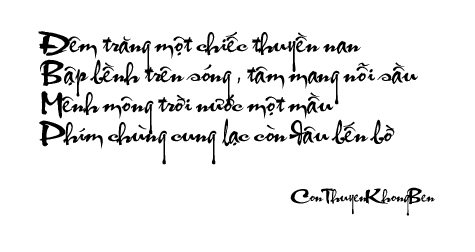 Đêm trăng một chiếc thuyền nan
Bập bềnh trên sóng , tâm mang nỗi sầu
Mênh mông trời nước một mầu
Phím chùng cung lạc còn đâu bến bờ
ConThuyenKhongBen